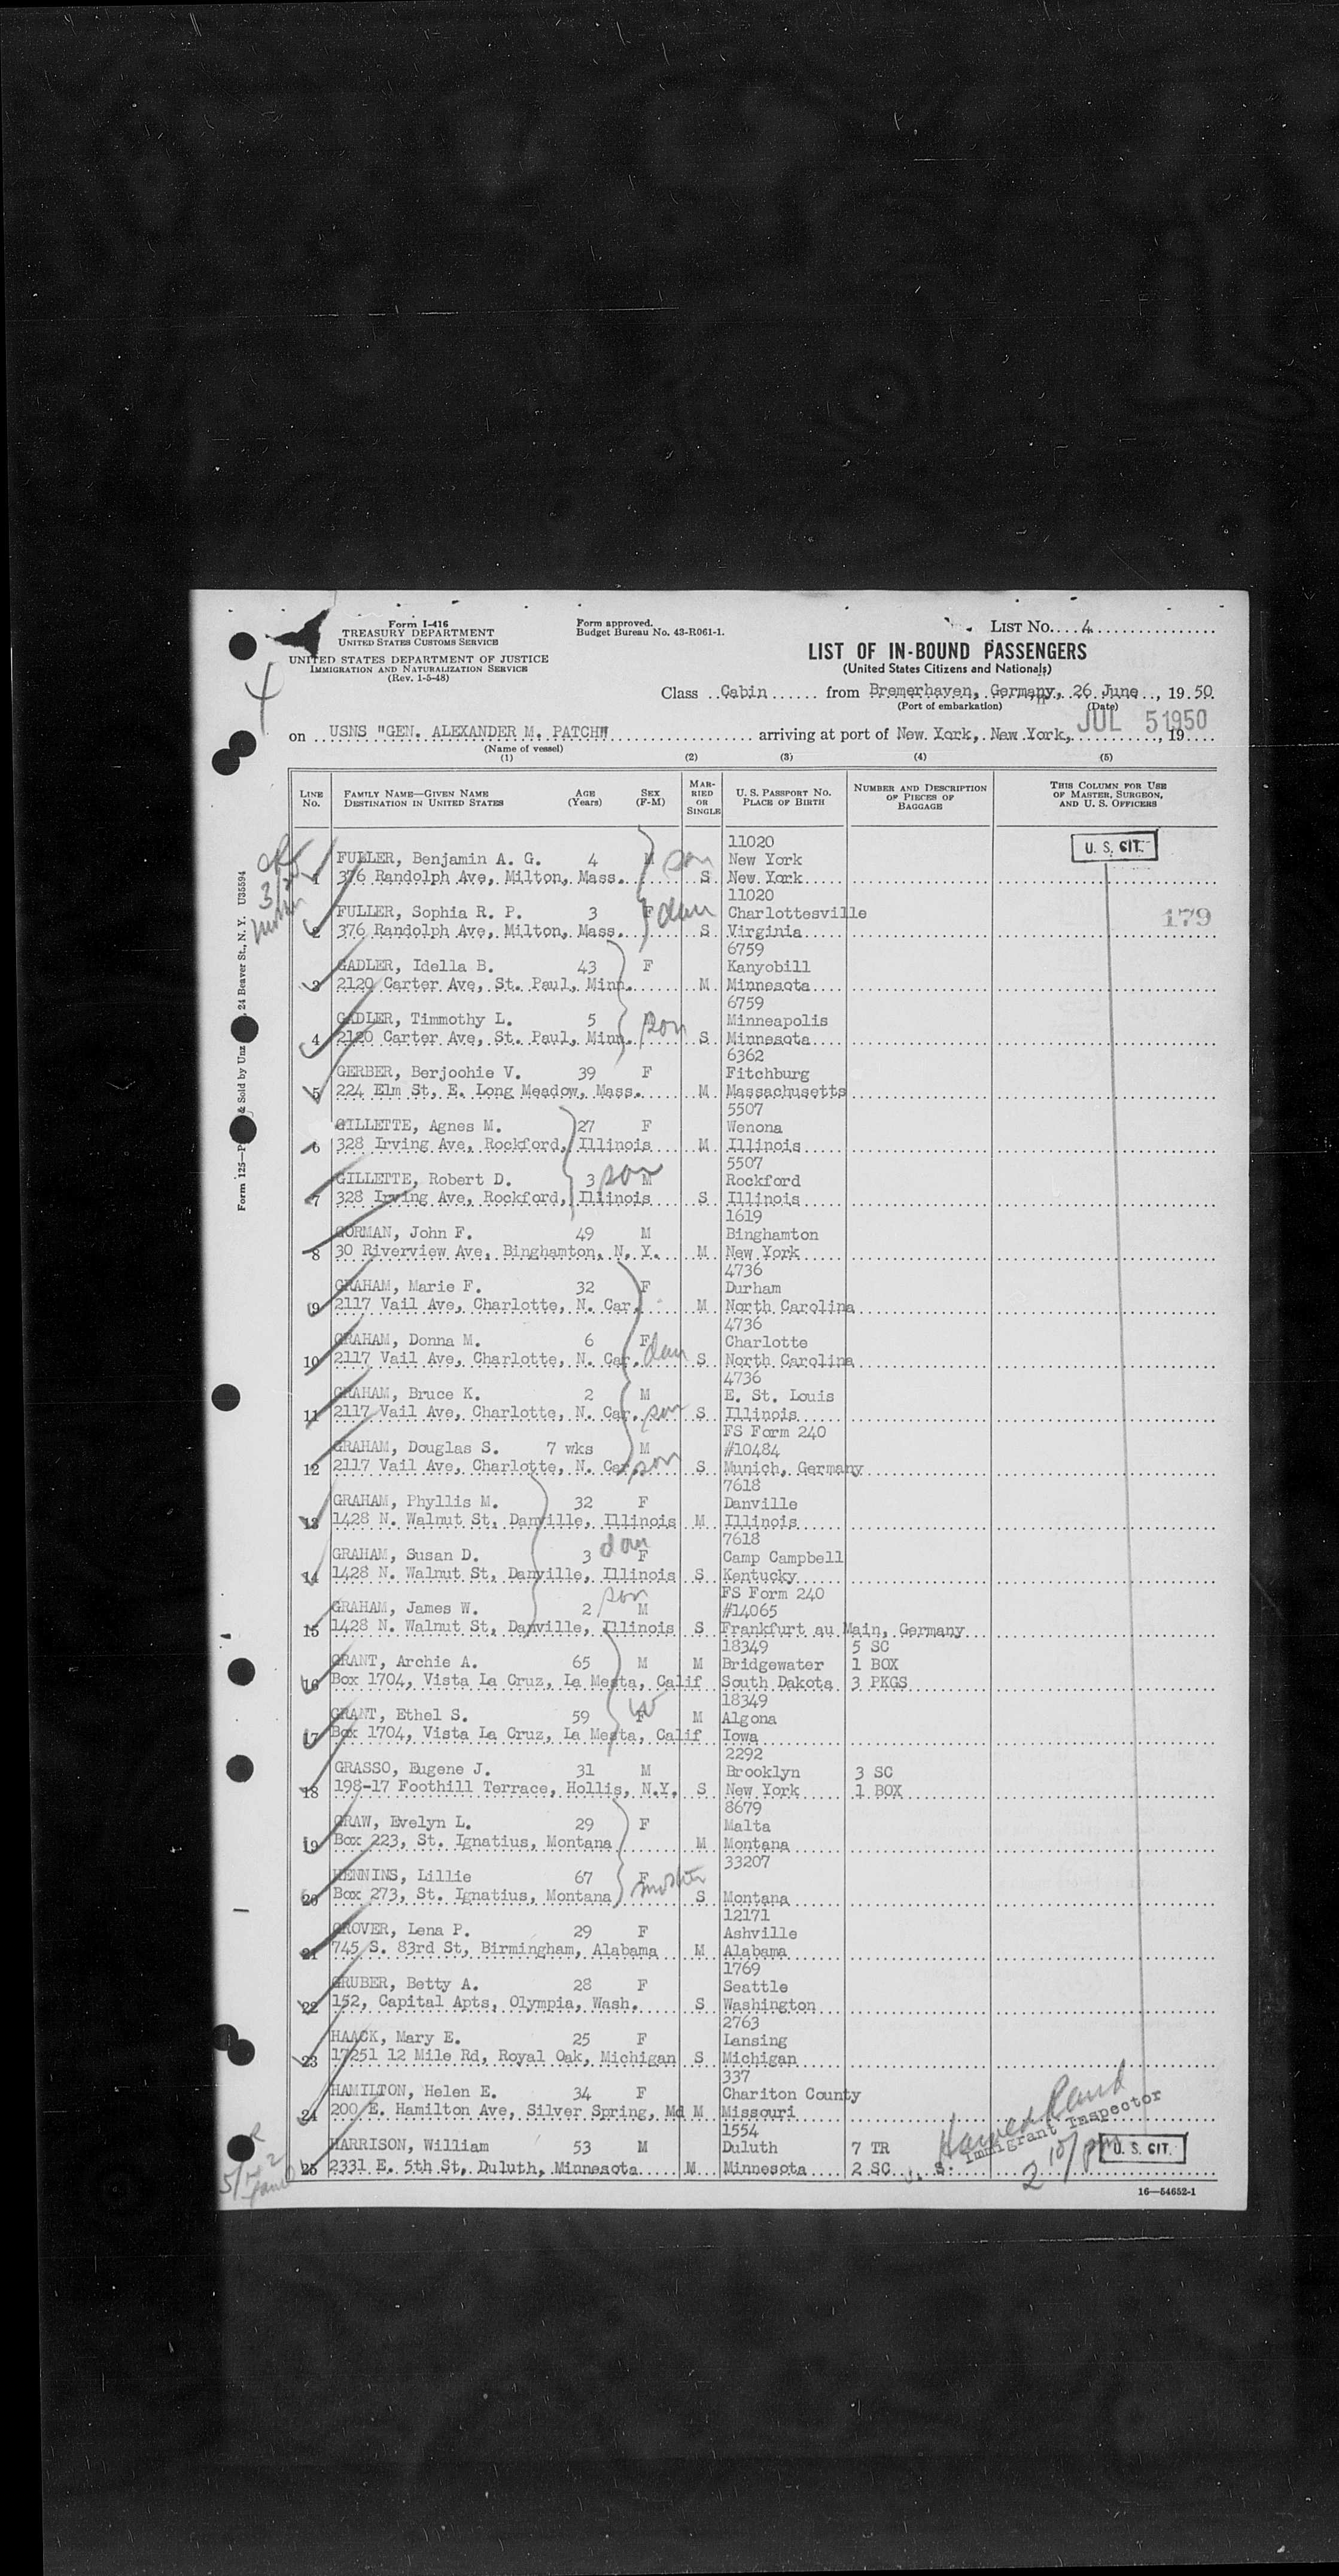 Form I-416
TREASURY DEPARTMENT
UNITED STATES CUSTOMS SERVICE
UNITED STATES DEPARTMENT OF JUSTICE
IMMIGRATION AND NATURALIZATION SERVICE
(Rev. 1-5-48)
Form approved.
Budget Bureau No. 43-R061-1.
LIST NO. 4
LIST OF IN-BOUND PASSENGERS
(United States Citizens and Nationals)
4
Class Cabin from Bremerhaven, Germany, 26 June, 19 50
(Port of embarkation) (Date)
on USNS "GEN. ALEXANDER M. PATCH" arriving at port of New York, New York, JUL 5 1950, 19
(Name of vessel)
(1) (2) (3) (4) (5)
LINE NO. FAMILY NAME—GIVEN NAME DESTINATION IN UNITED STATES AGE (Years) SEX (F-M) MARRIED OR SINGLE U. S. PASSPORT NO. PLACE OF BIRTH NUMBER AND DESCRIPTION OF PIECES OF BAGGAGE THIS COLUMN FOR USE OF MASTER, SURGEON, AND U. S. OFFICERS
11020 U. S. CIT.
FULLER, Benjamin A. G. 4 M son New York
1 376 Randolph Ave, Milton, Mass. S New York
11020
FULLER, Sophia R. P. 3 F dau Charlottesville 179
2 376 Randolph Ave, Milton, Mass. S Virginia
6759
GADLER, Idella B. 43 F Kanyobill
3 2120 Carter Ave, St. Paul, Minn. M Minnesota
6759
GADLER, Timmothy L. 5 M son Minneapolis
4 2120 Carter Ave, St. Paul, Minn. S Minnesota
6362
GERBER, Berjoohie V. 39 F Fitchburg
5 224 Elm St, E. Long Meadow, Mass. M Massachusetts
5507
GILLETTE, Agnes M. 27 F Wenona
6 328 Irving Ave, Rockford, Illinois M Illinois
5507
GILLETTE, Robert D. 3 son M Rockford
7 328 Irving Ave, Rockford, Illinois S Illinois
1619
GORMAN, John F. 49 M Binghamton
8 30 Riverview Ave, Binghamton, N. Y. M New York
4736
GRAHAM, Marie F. 32 F Durham
9 2117 Vail Ave, Charlotte, N. Car. M North Carolina
4736
GRAHAM, Donna M. 6 F dau Charlotte
10 2117 Vail Ave, Charlotte, N. Car. S North Carolina
4736
GRAHAM, Bruce K. 2 M E. St. Louis
11 2117 Vail Ave, Charlotte, N. Car. son S Illinois
FS Form 240
GRAHAM, Douglas S. 7 wks M #10484
12 2117 Vail Ave, Charlotte, N. Car. son S Munich, Germany
7618
GRAHAM, Phyllis M. 32 F Danville
13 1428 N. Walnut St, Danville, Illinois M Illinois
7618
GRAHAM, Susan D. 3 dau F Camp Campbell
14 1428 N. Walnut St, Danville, Illinois S Kentucky
FS Form 240
GRAHAM, James W. 2 son M #14065
15 1428 N. Walnut St, Danville, Illinois S Frankfurt au Main, Germany
18349 5 SC
GRANT, Archie A. 65 M M Bridgewater 1 BOX
16 Box 1704, Vista La Cruz, La Mesta, Calif South Dakota 3 PKGS
18349
GRANT, Ethel S. 59 F W M Algona
17 Box 1704, Vista La Cruz, La Mesta, Calif Iowa
2292
GRASSO, Eugene J. 31 M Brooklyn 3 SC
18 198-17 Foothill Terrace, Hollis, N.Y. S New York 1 BOX
8679
GRAW, Evelyn L. 29 F Malta
19 Box 223, St. Ignatius, Montana M Montana
33207
HENNINS, Lillie 67 F mother
20 Box 273, St. Ignatius, Montana S Montana
12171
GROVER, Lena P. 29 F Ashville
21 745 S. 83rd St, Birmingham, Alabama M Alabama
1769
GRUBER, Betty A. 28 F Seattle
22 152, Capital Apts, Olympia, Wash. S Washington
2763
HAACK, Mary E. 25 F Lansing
23 17251 12 Mile Rd, Royal Oak, Michigan S Michigan
337
HAMILTON, Helen E. 34 F Chariton County
24 200 E. Hamilton Ave, Silver Spring, Md M Missouri
Immigrant Inspector
1554
HARRISON, William 53 M Duluth 7 TR U. S. CIT.
25 2331 E. 5th St, Duluth, Minnesota M Minnesota 2 SC
16—54652-1
Form 125—P & Sold by Unz 24 Beaver St., N. Y. U35594